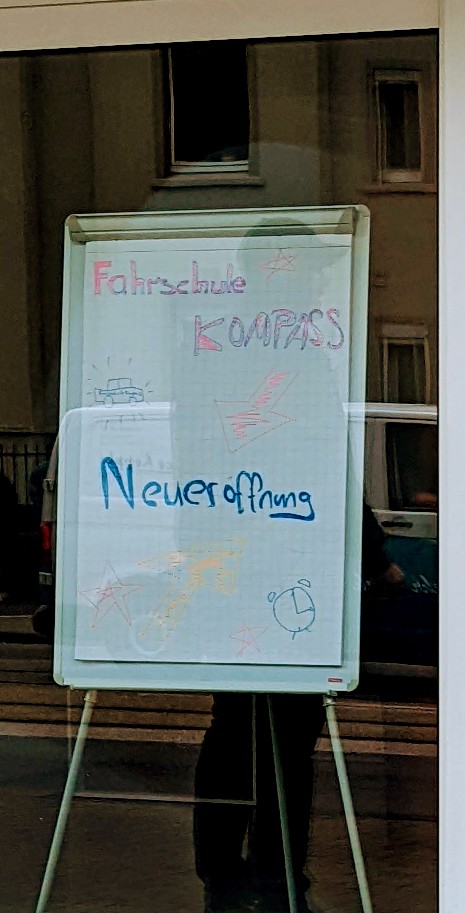 Fahrschule
KOMPASS
Neueröffnung